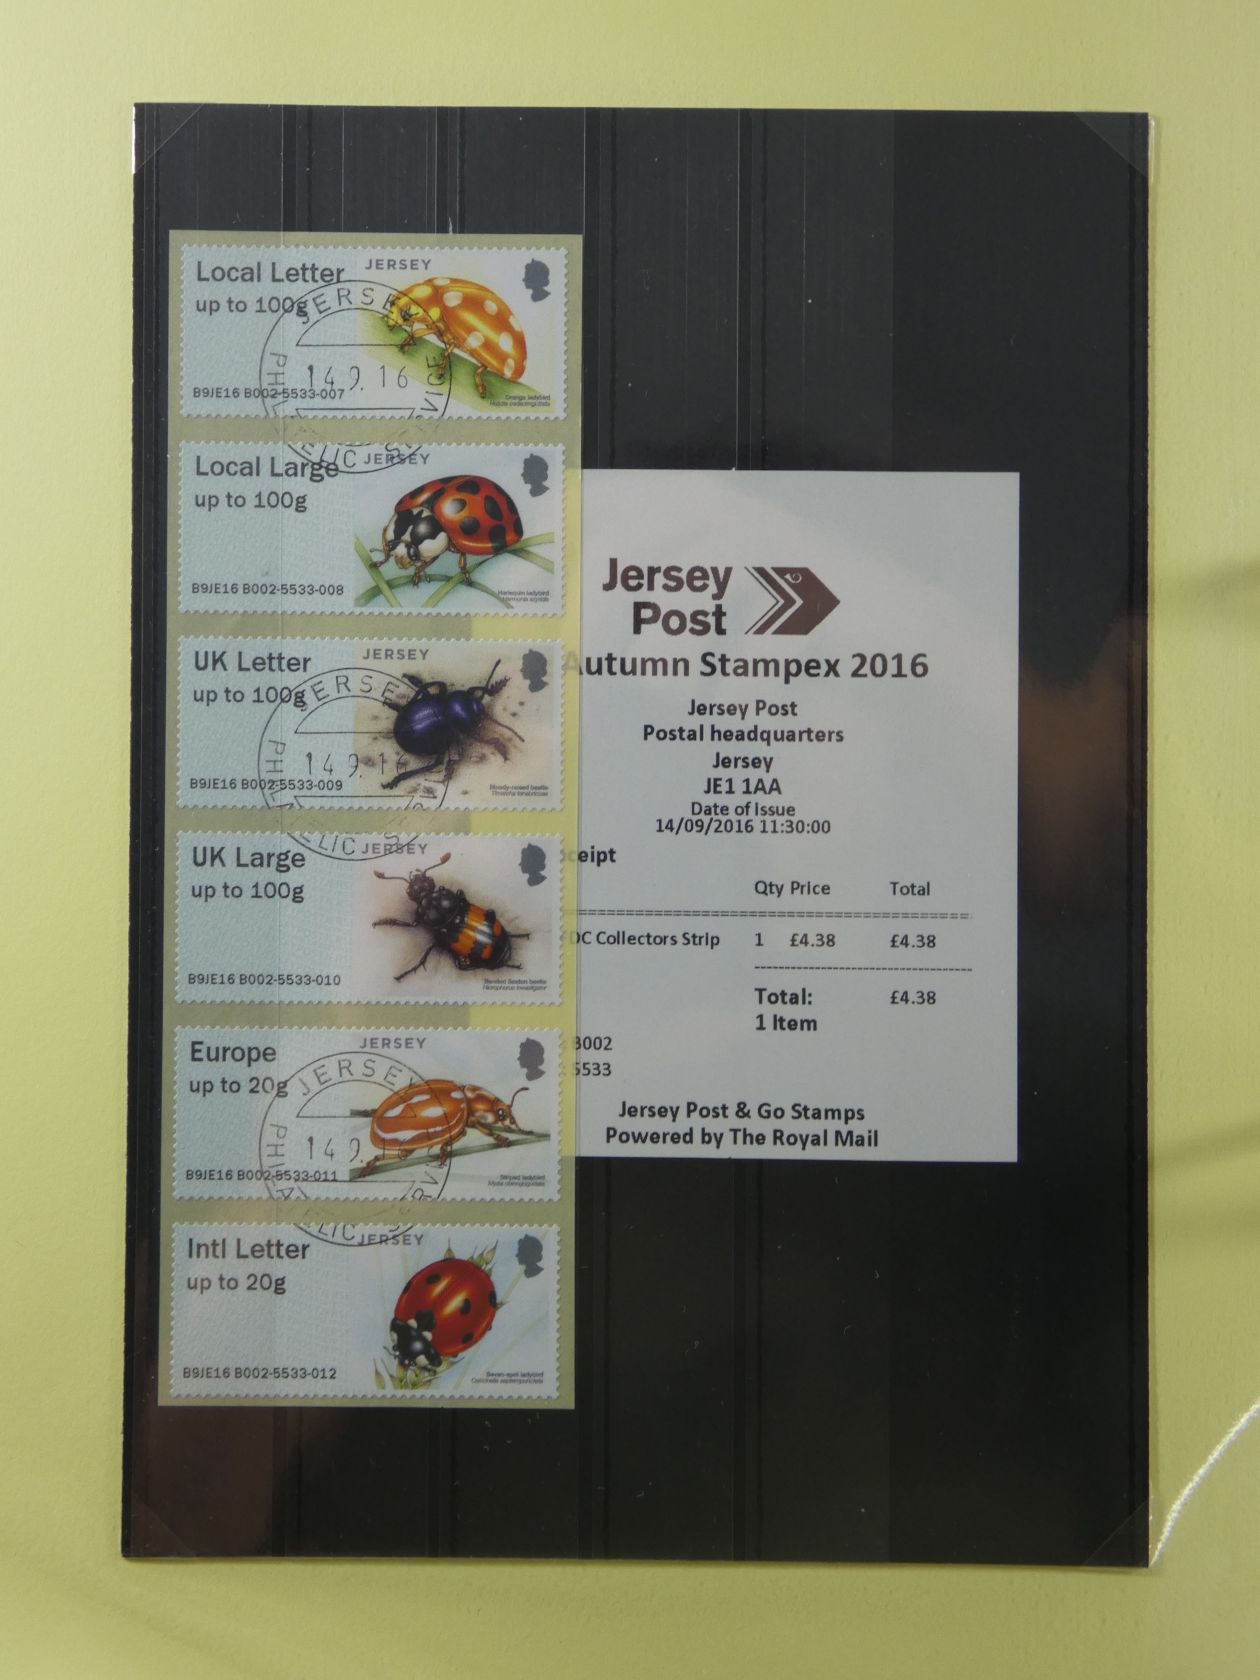 Local Letter
up to 100g
JERSEY
B9JE16 B002-5533-007
Orange ladybird
JERSEY
14.9.16
PHILATELIC SERVICE
Local Large
up to 100g
JERSEY
B9JE16 B002-5533-008
Harlequin ladybird
Harmonia axyridis
UK Letter
up to 100g
JERSEY
B9JE16 B002-5533-009
Bloody-nosed beetle
Timarcha tenebricosa
JERSEY
14.9.16
PHILATELIC SERVICE
UK Large
up to 100g
JERSEY
B9JE16 B002-5533-010
Banded Sexton beetle
Nicrophorus investigator
Europe
up to 20g
JERSEY
B9JE16 B002-5533-011
Striped ladybird
JERSEY
14.9.16
PHILATELIC SERVICE
Intl Letter
up to 20g
JERSEY
B9JE16 B002-5533-012
Seven-spot ladybird
Coccinella septempunctata
Jersey
Post
Autumn Stampex 2016
Jersey Post
Postal headquarters
Jersey
JE1 1AA
Date of Issue
14/09/2016 11:30:00
ceipt
Qty Price Total
DC Collectors Strip 1 £4.38 £4.38
Total: £4.38
1 Item
B002
5533
Jersey Post & Go Stamps
Powered by The Royal Mail